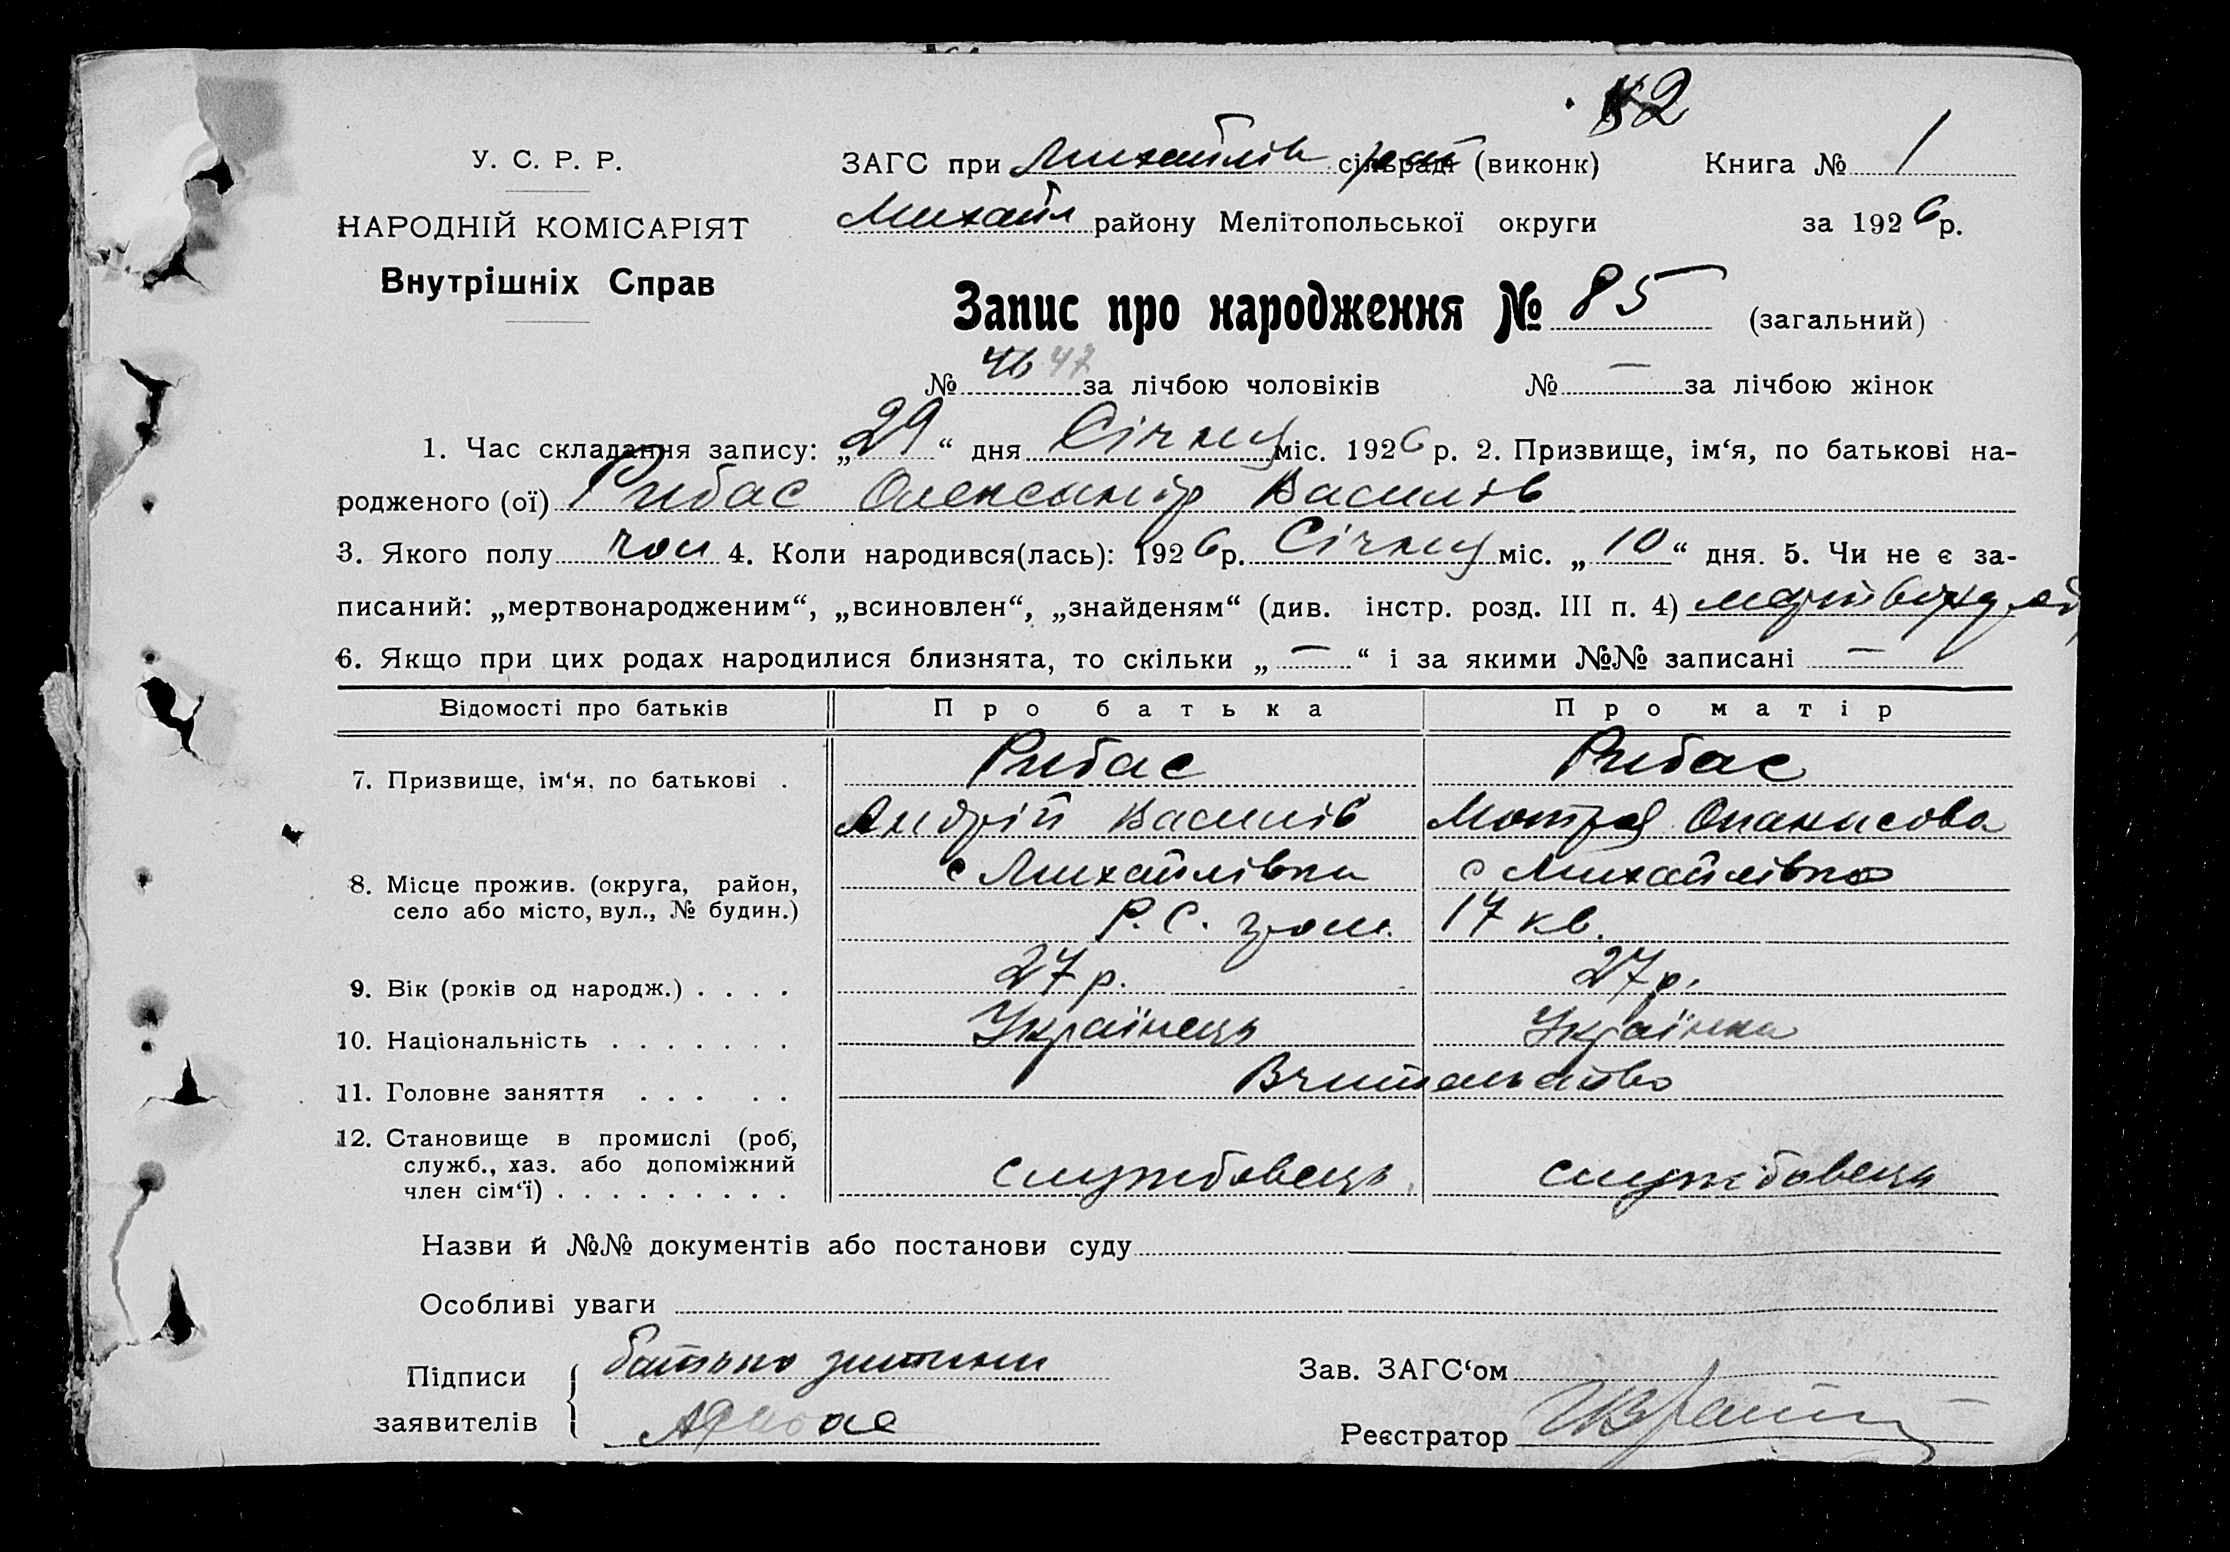 52
У. С. Р. Р.
ЗАГС при Михайлів сільраді (виконк) Книга № 1
НАРОДНІЙ КОМІСАРІЯТ
Внутрішніх Справ
Михайл району Мелітопольської округи за 1926 р.
Запис про народження № 85 (загальний)
№ 46 47 за лічбою чоловіків № — за лічбою жінок
1. Час складання запису: „29“ дня Січня міс. 1926 р. 2. Призвище, ім‘я, по батькові на-
родженого (ої) Рибас Олександр Василів
3. Якого полу чол 4. Коли народився(лась): 1926 р. Січня міс. „10“ дня. 5. Чи не є за-
писаний: „мертвонародженим“, „всиновлен“, „знайденям“ (див. інстр. розд. III п. 4)
6. Якщо при цих родах народилися близнята, то скільки „—“ і за якими №№ записані —
Відомості про батьків Про батька Про матір
7. Призвище, ім‘я, по батькові . Рибас Рибас
Андрій Василів Мотря Опанасова
8. Місце прожив. (округа, район, село або місто, вул., № будин.) с Михайлівка с Михайлівка
Р. С. гром. 17 кв.
9. Вік (років од народж.) . . . . 27 р. 27 р.
10. Національність . . . . . . . Українець Українка
11. Головне заняття . . . . . Вчительство
12. Становище в промислі (роб, служб., хаз. або допоміжний член сім‘ї) . . . . . . . . . службовець службовець
Назви й №№ документів або постанови суду
Особливі уваги
Підписи заявителів батько дитини
АРибас
Зав. ЗАГС‘ом
Реєстратор